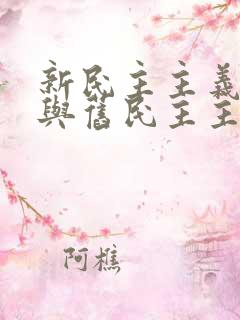 新民主主義
與舊民主主
阿樵